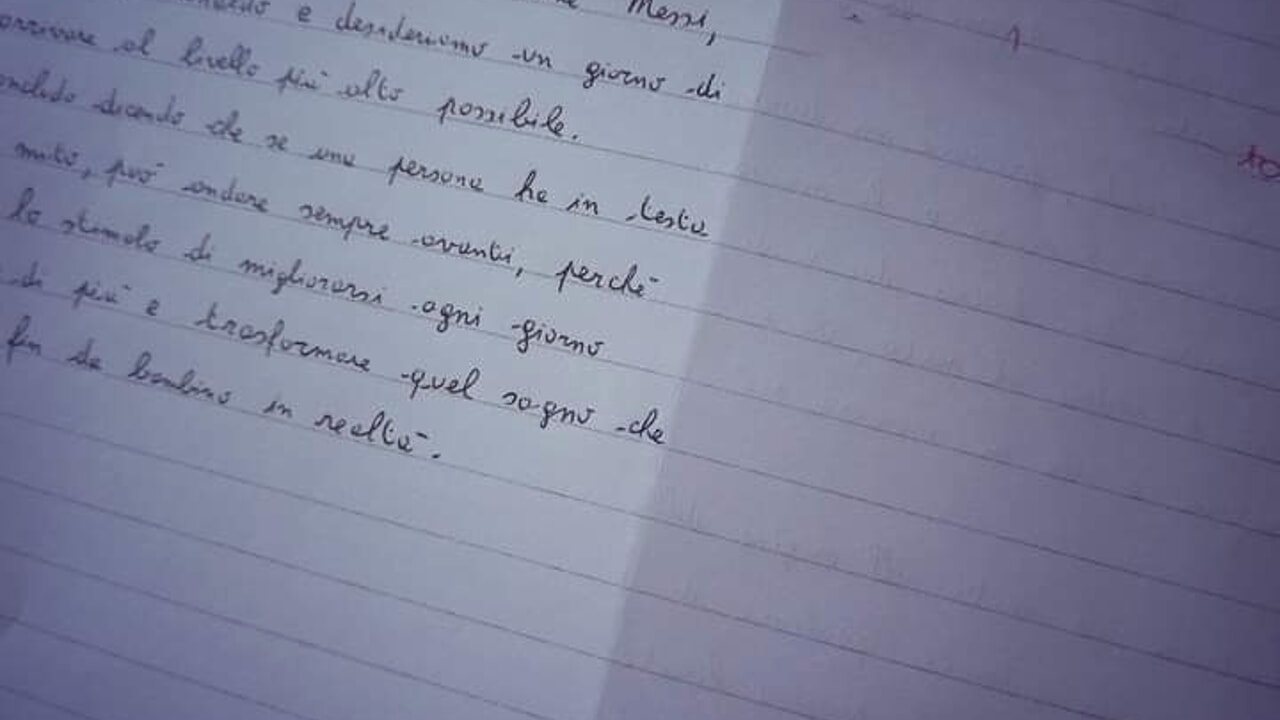 Messi,
e desideriamo un giorno di
arrivare al livello più alto possibile.
dicendo che se una persona ha in testa
mito, può andare sempre avanti, perché
lo stimolo di migliorarsi ogni giorno
di più e trasformare quel sogno che
fin da bambino in realtà.